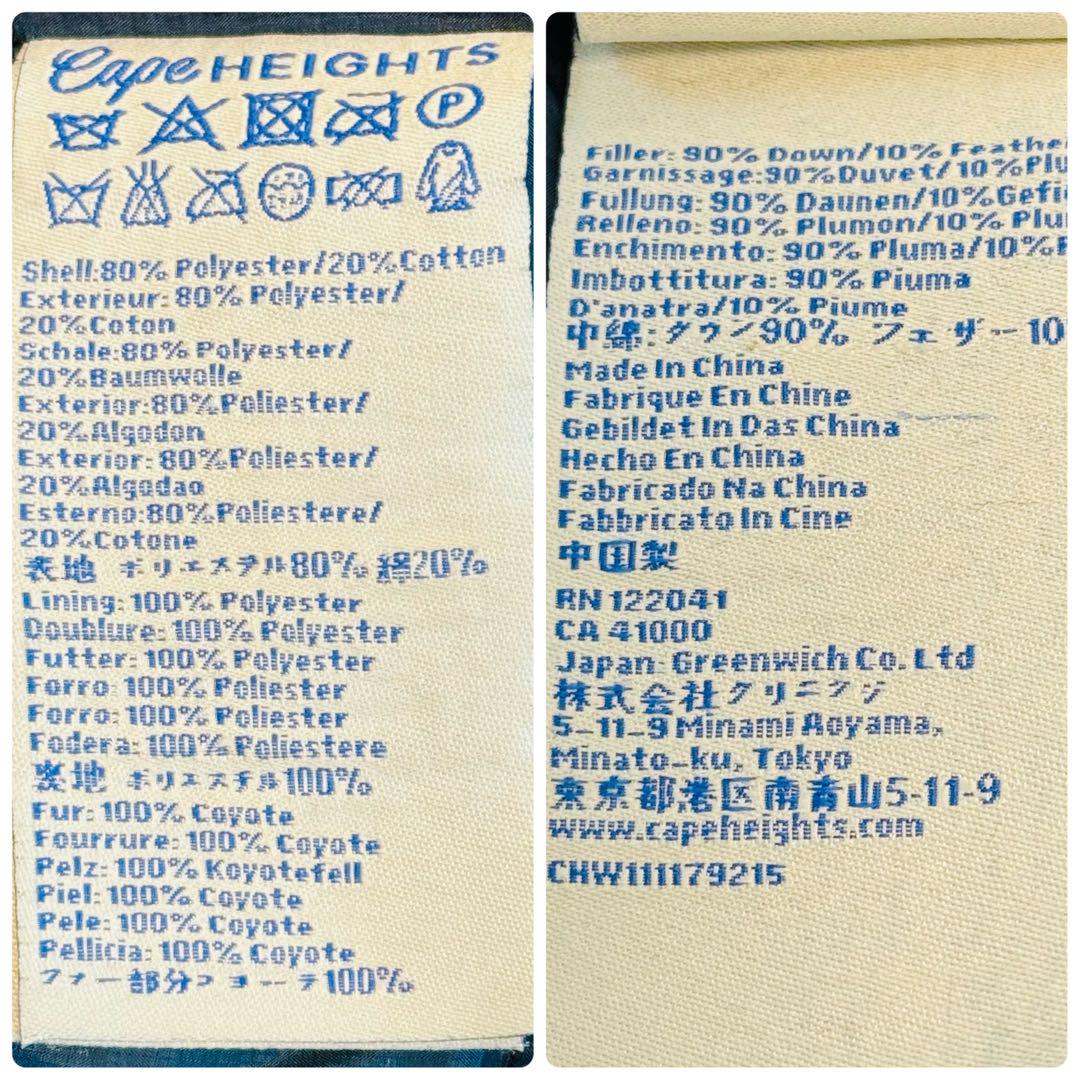 Cape HEIGHTS
P
Shell:80% Polyester/20%Cotton
Exterieur: 80% Polyester/
20%Coton
Schale:80% Polyester/
20%Baumwolle
Exterior:80%Poliester/
20%Algodon
Exterior:80%Poliester/
20%Algodao
Esterno:80%Poliestere/
20%Cotone
表地 ポリエステル80% 綿20%
Lining:100% Polyester
Doublure:100% Polyester
Futter:100% Polyester
Forro:100% Poliester
Forro:100% Poliester
Fodera:100% Poliestere
裏地 ポリエステル100%
Fur:100% Coyote
Fourrure:100% Coyote
Pelz:100% Koyotefell
Piel:100% Coyote
Pele:100% Coyote
Pellicia:100% Coyote
ファー部分コヨーテ100%
Filler: 90% Down/10% Feathe
Garnissage:90%Duvet/10%Plu
Fullung: 90% Daunen/10%Gefi
Relleno: 90% Plumon/10% Plu
Enchimento: 90% Pluma/10%
Imbottitura: 90% Piuma
D'anatra/10% Piume
中綿:ダウン90% フェザー10
Made In China
Fabrique En Chine
Gebildet In Das China
Hecho En China
Fabricado Na China
Fabbricato In Cine
中国製
RN 122041
CA 41000
Japan: Greenwich Co. Ltd
株式会社グリニッジ
5-11-9 Minami Aoyama,
Minato-ku, Tokyo
東京都港区南青山5-11-9
www.capeheights.com
CHW111179215